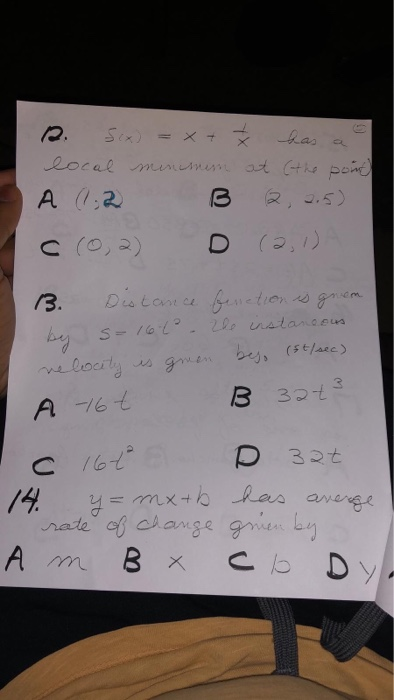 12. f(x) = x + 1/x has a
local minimum at (the point)
A (1,2) B (2, 2.5)
C (0,2) D (2,1)
13. Distance function is given
by S = 16t². The instaneous
velocity is given by: (ft/sec)
A -16t B 32t³
C 16t² D 32t
14. y = mx+b has averge
rate of change given by
A m B x C b D y